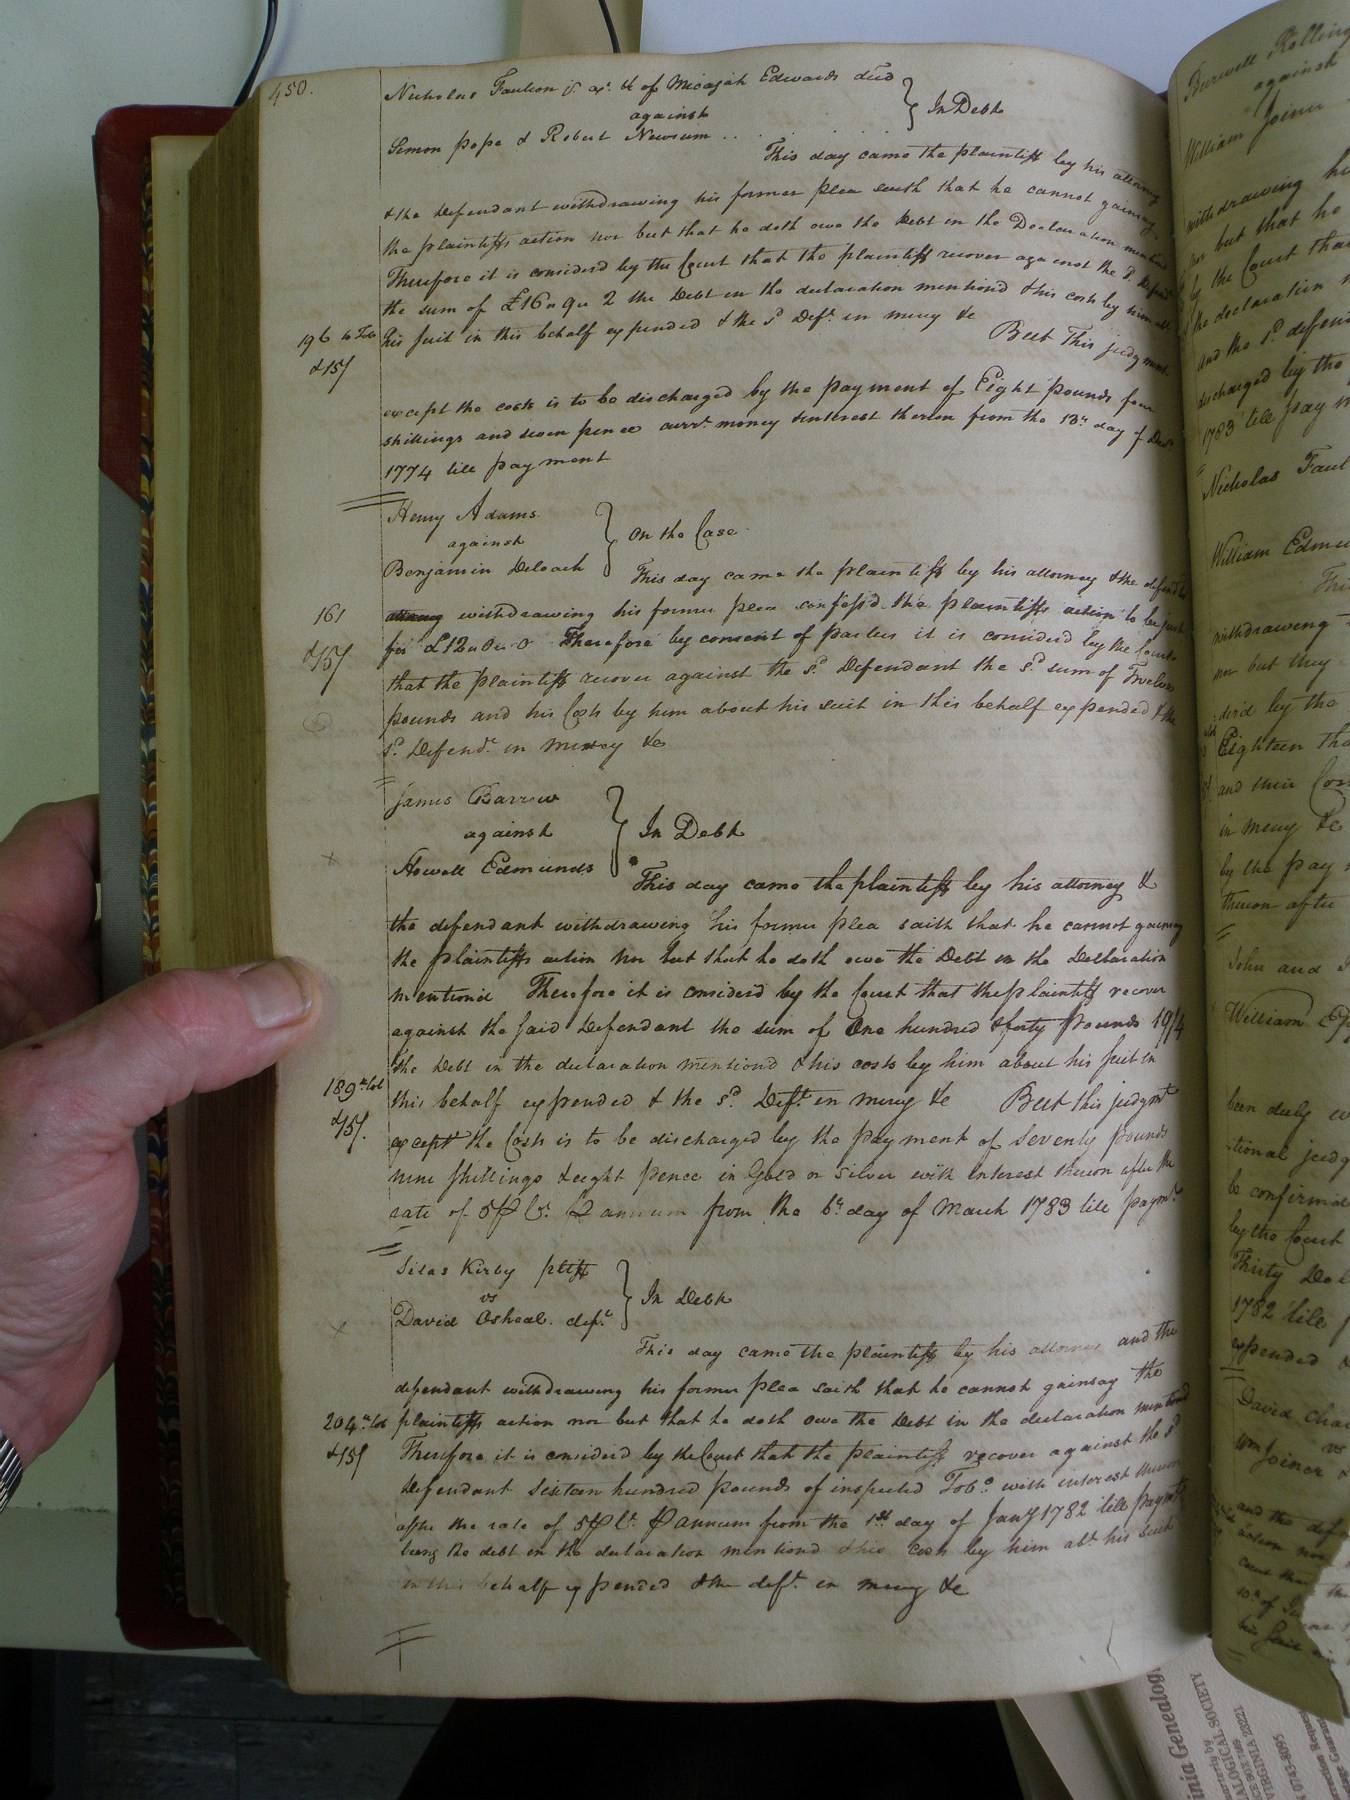 450.
Nicholas Faulcon jr. exr. &c of Micajah Edwards decd
against
In Debt
Simon Pope & Robert Newsum . . . . .
This day came the plaintiff by his attorney
& the Defendant withdrawing his former plea saith that he cannot gainsay
the plaintiffs action nor but that he doth owe the Debt in the Declaration mentiond
Therefore it is considerd by the Court that the plaintiff recover against the sd. Defendt
the sum of £16 " 9 " 2 the Debt in the declaration mentiond & his costs by him abt
196 lb Tob
his suit in this behalf expended & the sd Deft. in mercy &c But This judgment
&15/
except the costs is to be discharged by the payment of Eight pounds four
shillings and seven pence currt. money & interest thereon from the 13th day of Decr.
1774 till payment
Henry Adams
against
On the Case
Benjamin Deloach
This day came the plaintiff by his attorney & the defendt
161
withdrawing his former plea confess'd the plaintiffs action to be just
for £12 " 0 " 0 Therefore by consent of parties it is considerd by the Court
&15/
that the plaintiff recover against the sd. Defendant the sd. sum of Twelve
pounds and his Costs by him about his suit in this behalf expended & the
sd. Defendt. in mercy &c
James Barrow
against
In Debt
Howell Edmunds
This day came the plaintiff by his attorney &
the defendant withdrawing his former plea saith that he cannot gainsay
the plaintiffs action nor but that he doth owe the Debt in the Declaration
mentiond Therefore it is considerd by the Court that the plaintiff recover
against the said Defendant the sum of One hundred & forty Pounds 19/4
the Debt in the declaration mentiond & his costs by him about his suit in
189 " lbt
this behalf expended & the sd. Deft. in mercy &c But this judgmt
&15/.
except the Costs is to be discharged by the payment of Seventy pounds
nine shillings & eight pence in Gold or Silver with Interest thereon after the
rate of 5 P Ct. P annum from the 6th day of March 1783 till paymt.
Silas Kirby pltff
vs
In Debt
David Osheal. deft.
This day came the plaintiff by his attorney and the
defendant withdrawing his former plea saith that he cannot gainsay the
204 " lbt
plaintiffs action nor but that he doth owe the Debt in the declaration mentiond
&15/
Therefore it is considerd by the Court that the plaintiff recover against the sd.
Defendant Sixteen hundred pounds of inspected Tobo. with interest thereon
after the rate of 5 P Ct. P annum from the 1st day of Jany 1782 till paymt.
being the debt in the declaration mentiond & his costs by him abt. his suit
in this behalf expended & the deft. in mercy &c
Burwell Rolling
against
William Joiner
withdrawing his
nor but that he
by the Court that
the declaration
and the sd. defen
discharged by the
1783 till paym
Nicholas Faul
William Edmu
This
withdrawing
nor but they
derd by the
Eighteen tho
and their Cos
in mercy &c
by the pay
thereon after
John and
William
been duly
tional judg
be confirmd
by the Court
Thirty
1782 till
expended
David Cha
vs
Wm Joiner
and the def
action nor
inia Genealog
ALOGICAL SOCIETY
VIRGINIA 23221
0743-8095